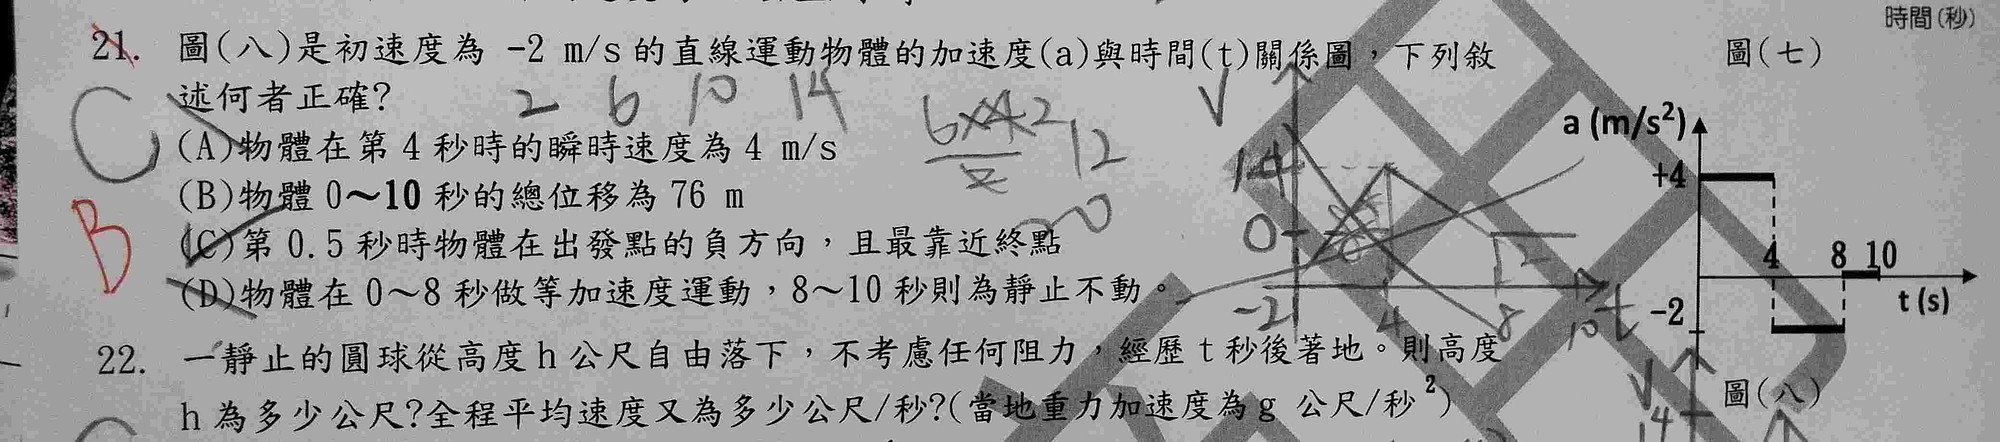 時間(秒)
21. 圖(八)是初速度為 -2 m/s 的直線運動物體的加速度(a)與時間(t)關係圖，下列敘
述何者正確?
(A)物體在第 4 秒時的瞬時速度為 4 m/s
(B)物體 0～10 秒的總位移為 76 m
(C)第 0.5 秒時物體在出發點的負方向，且最靠近終點
(D)物體在 0～8 秒做等加速度運動，8～10 秒則為靜止不動。
22. 一靜止的圓球從高度 h 公尺自由落下，不考慮任何阻力，經歷 t 秒後著地。則高度
h 為多少公尺?全程平均速度又為多少公尺/秒?(當地重力加速度為 g 公尺/秒²)
圖(七)
a (m/s²)
+4
4 8 10
t (s)
-2
圖(八)
C
B
2 6 10 14
12
V
14
0
-2
4 8 10 t
V
14